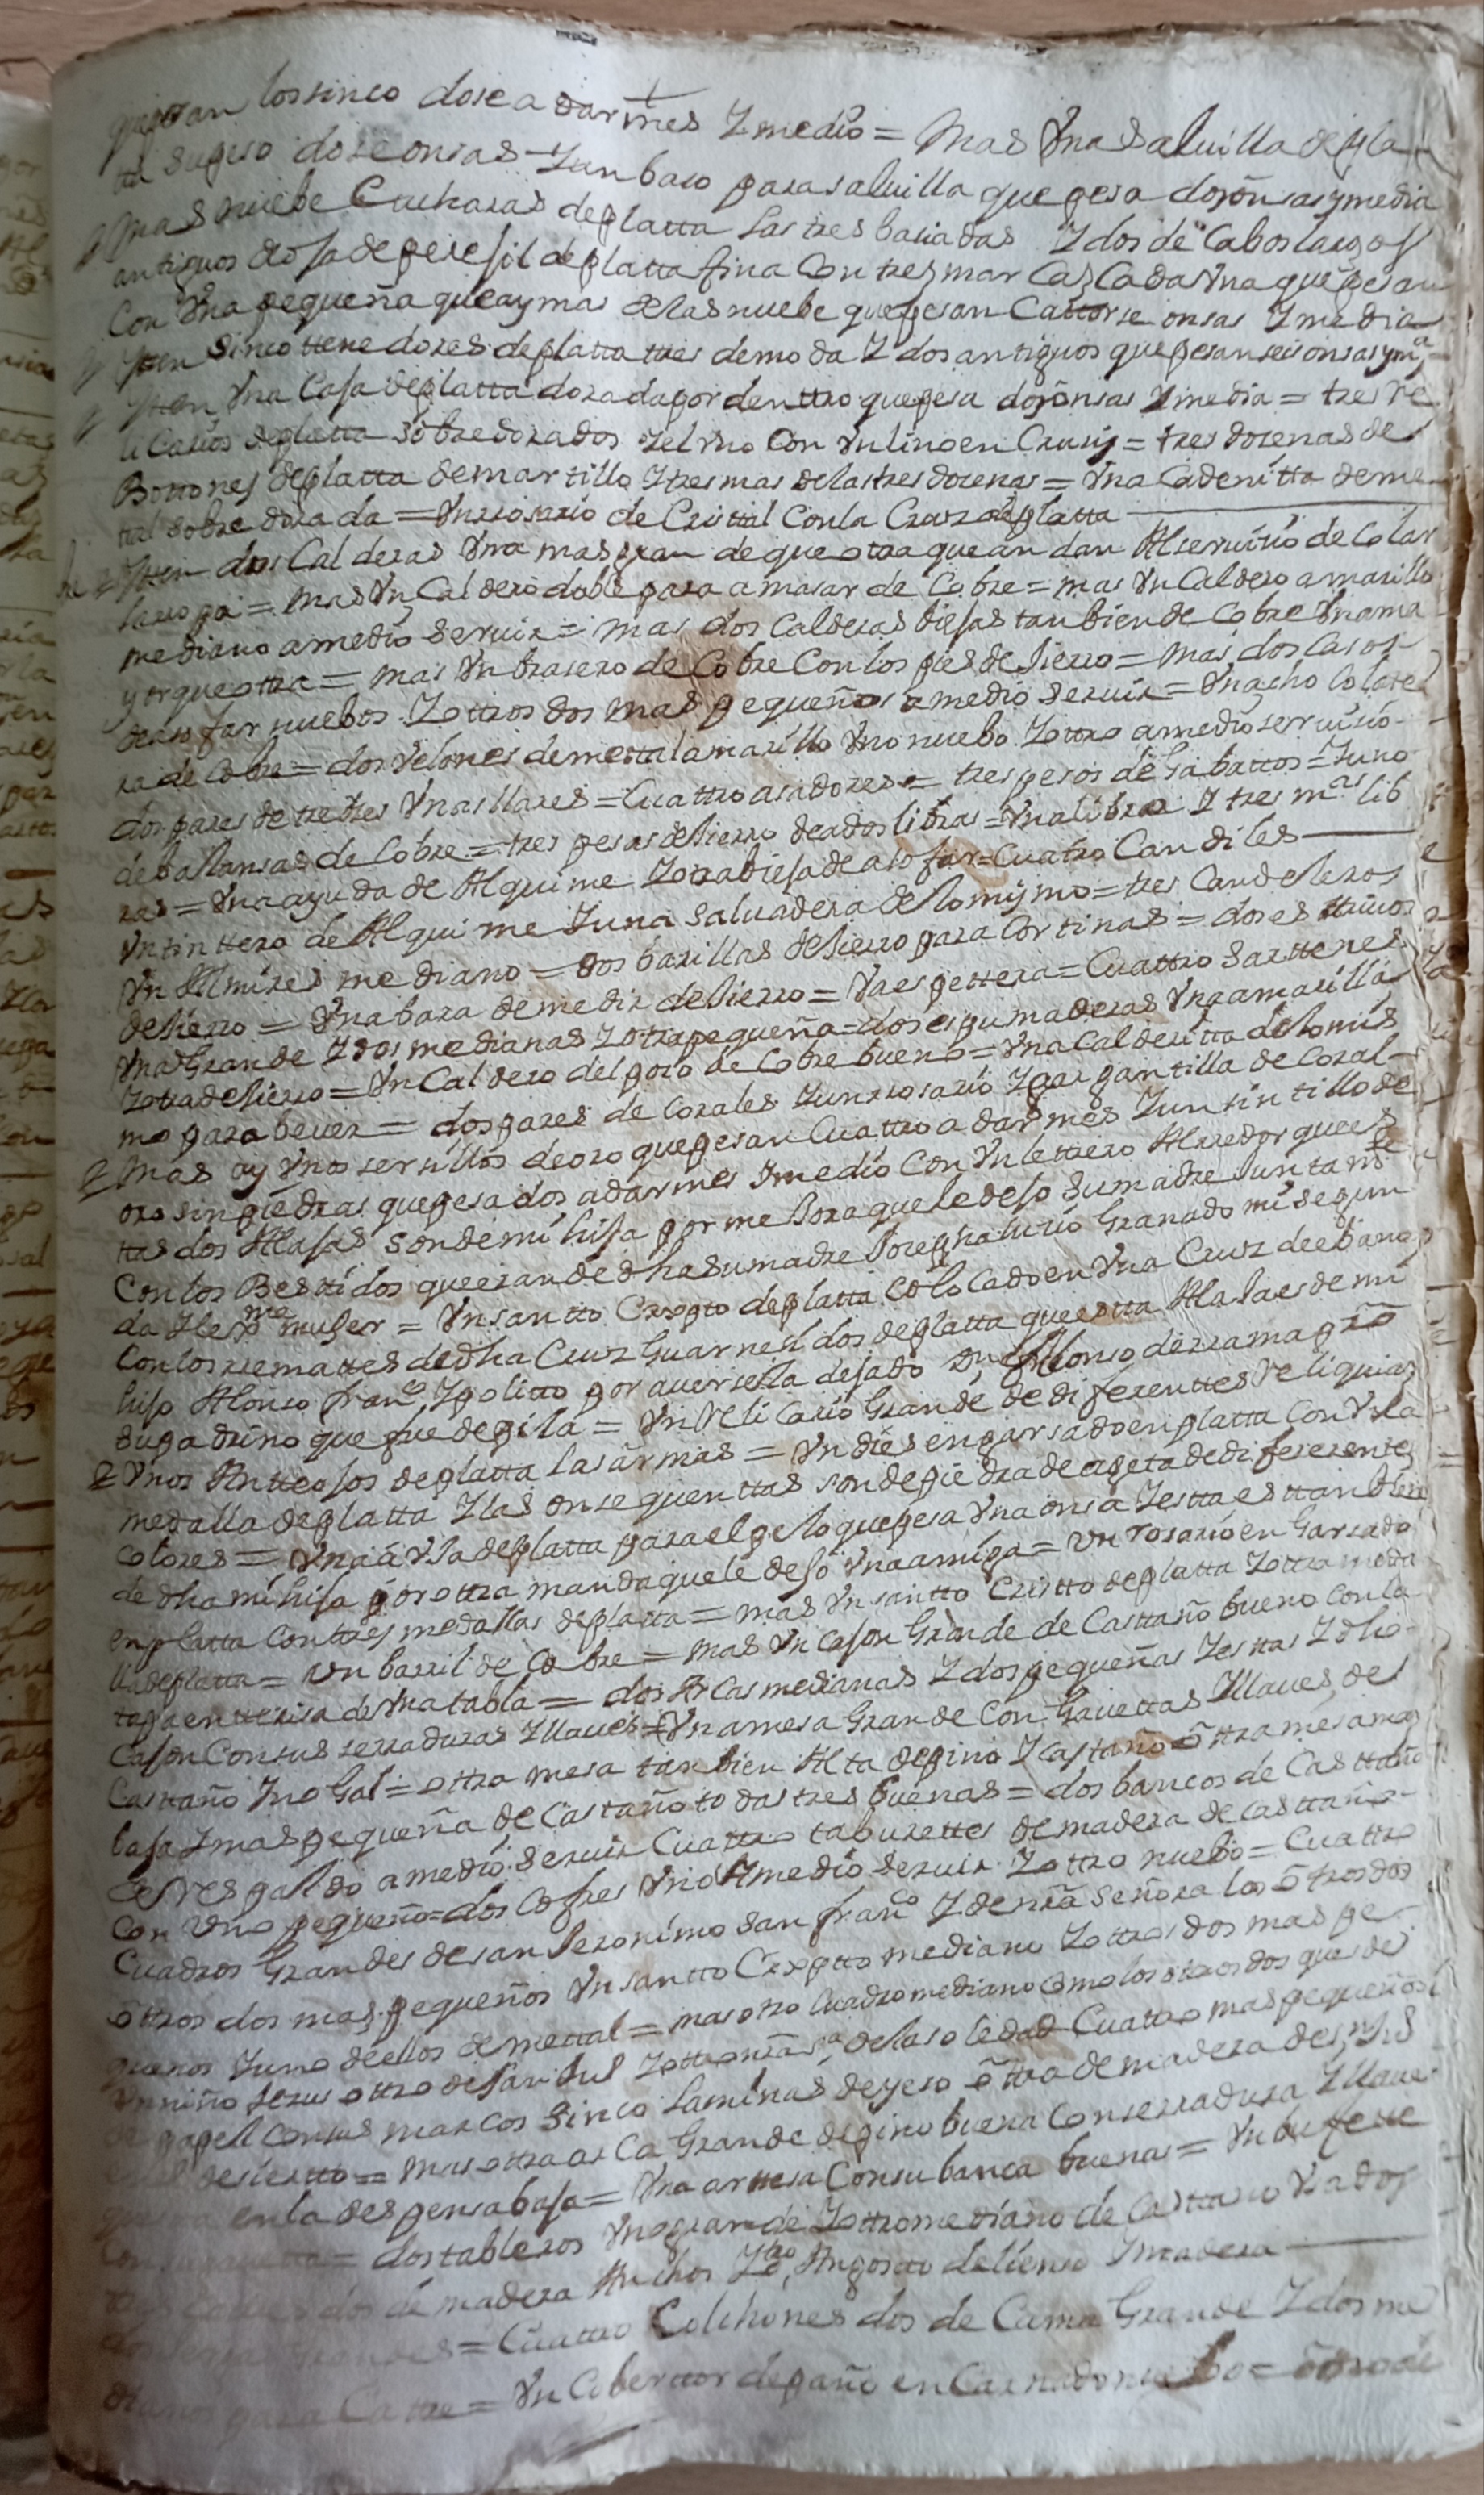 pesan los sinco dose adarmes Y medio = mas Vna Saluilla de pla
ta su peso dose onsas Y un baso para saluilla que pesa dos onsas y media
mas nuebe Cucharas de platta las tres basiadas Y dos de Cabos largos
antiguos de plata fina Con tres marcas Cada Vna que pesan
Con Vna pequeña que ay mas de las nuebe que pesan Cattorse onsas Y media
Yten Sinco ttenedores de platta tres de moda Y dos antiguos que pesan seis onsas y mª
Yten Vna Casa de platta dorada por denttro que pesa dos onsas Y media = tres re
licarios de platta sobredorados Y el Vno Con Vn linoen Crusis = tres dosenas de
Bottones de platta de martillo Y tres mas de las tres dosenas = Vna Cadenitta de me
tal sobre dorada = Vn rrosario de Cristtal Con la Cruz de platta
Yten dos Calderas Vna mas gran de que otra que andan Al seruisio de Colar
la rropa = mas Vn Caldero doble para amasar de Cobre = mas Vn Caldero amarillo
mediano a medio seruir = mas dos Calderas biejas tanbien de Cobre Vna ma
yor que otra = mas Vn brasero de Cobre Con los pies de hierro = mas dos Casos
de asofar nuebos Y ottros dos mas pequeños a medio seruir = Vna chocolate
ra de Cobre = dos Velones de mettal amarillo Vno nuebo Y ottro a medio seruisio
dos pares de trebes Vnas llares = Cuattro asadores = tres pesos de Garabattos = Y uno
de ballansas de Cobre = tres pesas de hierro de a dos libras = Vna libra Y tres mas lib
ras = Vna ayuda de Alquime Y otra bieja de asofar = Cuatro Candiles
Vn tinttero de Alquime Y una saluadera de lo mismo = tres Candeleros
Vn Almires mediano = dos barillas de hierro para Cortinas = dos esttriuos
de hierro = Vna bara de medir de hierro = Vna espettera = Cuattro Sarttenes
Vna Grande Y dos medianas Y otra pequeña = dos espumaderas Vna amarilla
Y otra de hierro = Vn Caldero del poso de Cobre bueno = Vna Calderitta de lo mis
mo para beuer = dos pares de Corales Y un rrosario Y gargantilla de Coral
Mas ay Vnos sersillos de oro que pesan Cuattro adarmes Y un sintillo de
oro sin piedras que pesa dos adarmes Y medio Con Vn lettrero Alrredor que es
tas dos Alajas son de mi hija por mejora que le dejo su madre Junttamte
Con los Besttidos que eran de dha su madre Josepha Lusio Granado mi segun
da Y lexma muger = Vn santto Crxptto de platta Colocado en Vna Cruz de ebano
Con los rremattes de dha Cruz Guarnesidos de platta que estta Alaja es de mi
hijo Alonso Franco Ypolitto por auersela dejado Dn Alonso
su padrino que fue de pila = Vn Relicario Grande de diferenttes Reliquias
Vnos Antteojos de platta las armas = Vn dies engarsado en platta Con Vna
medalla de platta Y las onse quenttas son de piedra de ageta de diferentes
colores = Vna auja de platta para el pelo que pesa Vna onsa Y estta es ttanbien
de dha mi hija por ottra manda que le dejo Vna amiga = Vn rosario en Garsado
en platta Con tres medallas de platta = mas Vn santto Cristto de platta Y ottra meda
lla de platta = Vn barril de Cobre = mas Vn Cajon Grande de Casttaño bueno con la
tapa entterisa de Vna tabla = dos Arcas medianas Y dos pequeñas Y estas Y dho
Cajon Con sus serraduras Y llaues = Vna mesa Grande Con Gauettas Y llaues de
Casttaño Y noGal = ottra mesa tanbien Alta de pino Y casttaño ottra mesa mas
baja Y mas pequeña de Castaño todas tres buenas = dos bancos de Casttaño
de respaldo a medio seruir Cuattro taburettes de madera de casttaño
Con Vno pequeño = dos Cofres Vno A medio seruir Y ottro nuebo = Cuattro
Cuadros Grandes de san Jeronimo San Franco Y de nra Señora los otros dos
ottros dos mas pequeños Vn santto Crxptto mediano Y ottros dos mas pe
queños Y uno de ellos de mettal = mas otro Cuadro mediano Como los otros dos que es de
Vn niño Jesus ottro de San Y ottro nra Sa de la soledad Cuattro mas pequeños
de papel Con sus marcos Sinco Laminas de yeso ottra de madera de sn Ju
en el desiertto = mas ottra arca Grande de pino buena Con serradura Y llaue
en la despensa baja = Vna arttesa Con su banca buena = Vn bufette
= dos tableros Vno grande Y ottro mediano de Casttaño
de madera Anchos Y Angosto de lienso Y madera
= Cuattro Colchones dos de Cama Grande Y dos me
para Cattre = Vn Coberttor de paño en Carnado nuebo = ottro de